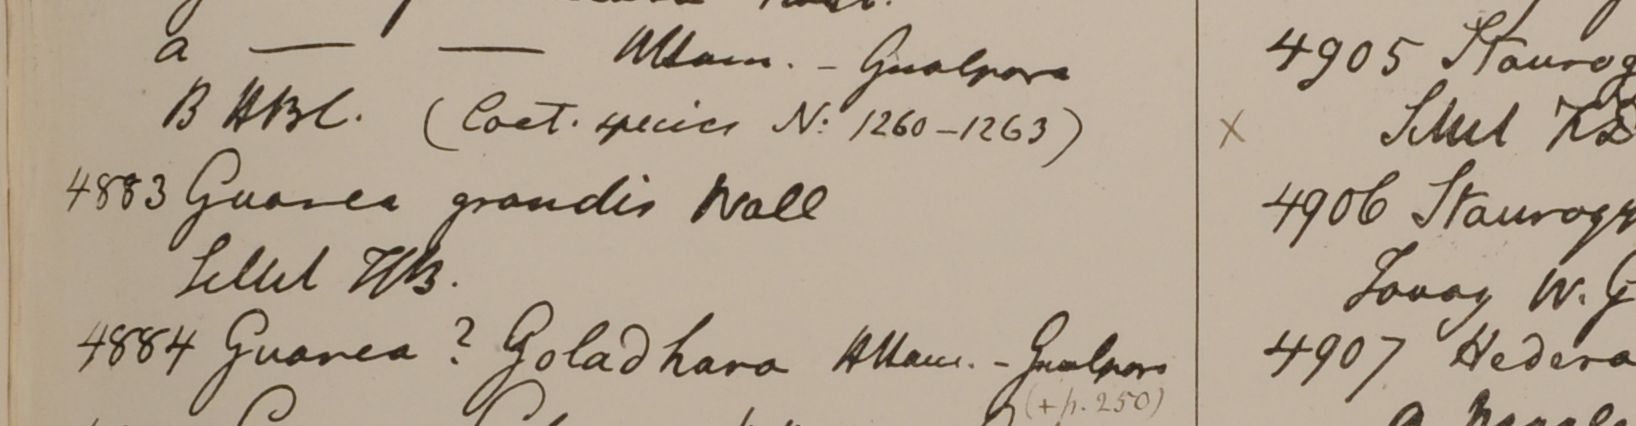 a — — Hham. - Gualpara
B HBC. (Caet. species N: 1260-1263)
4883 Guarea grandis Wall
Sillet WB.
4884 Guarea ? Goladhara Hham. - Gualpara
(+ p. 250)
4905 Staurog
x Sillet
4906 Staurogy
Tavoy W. G
4907 Hedera